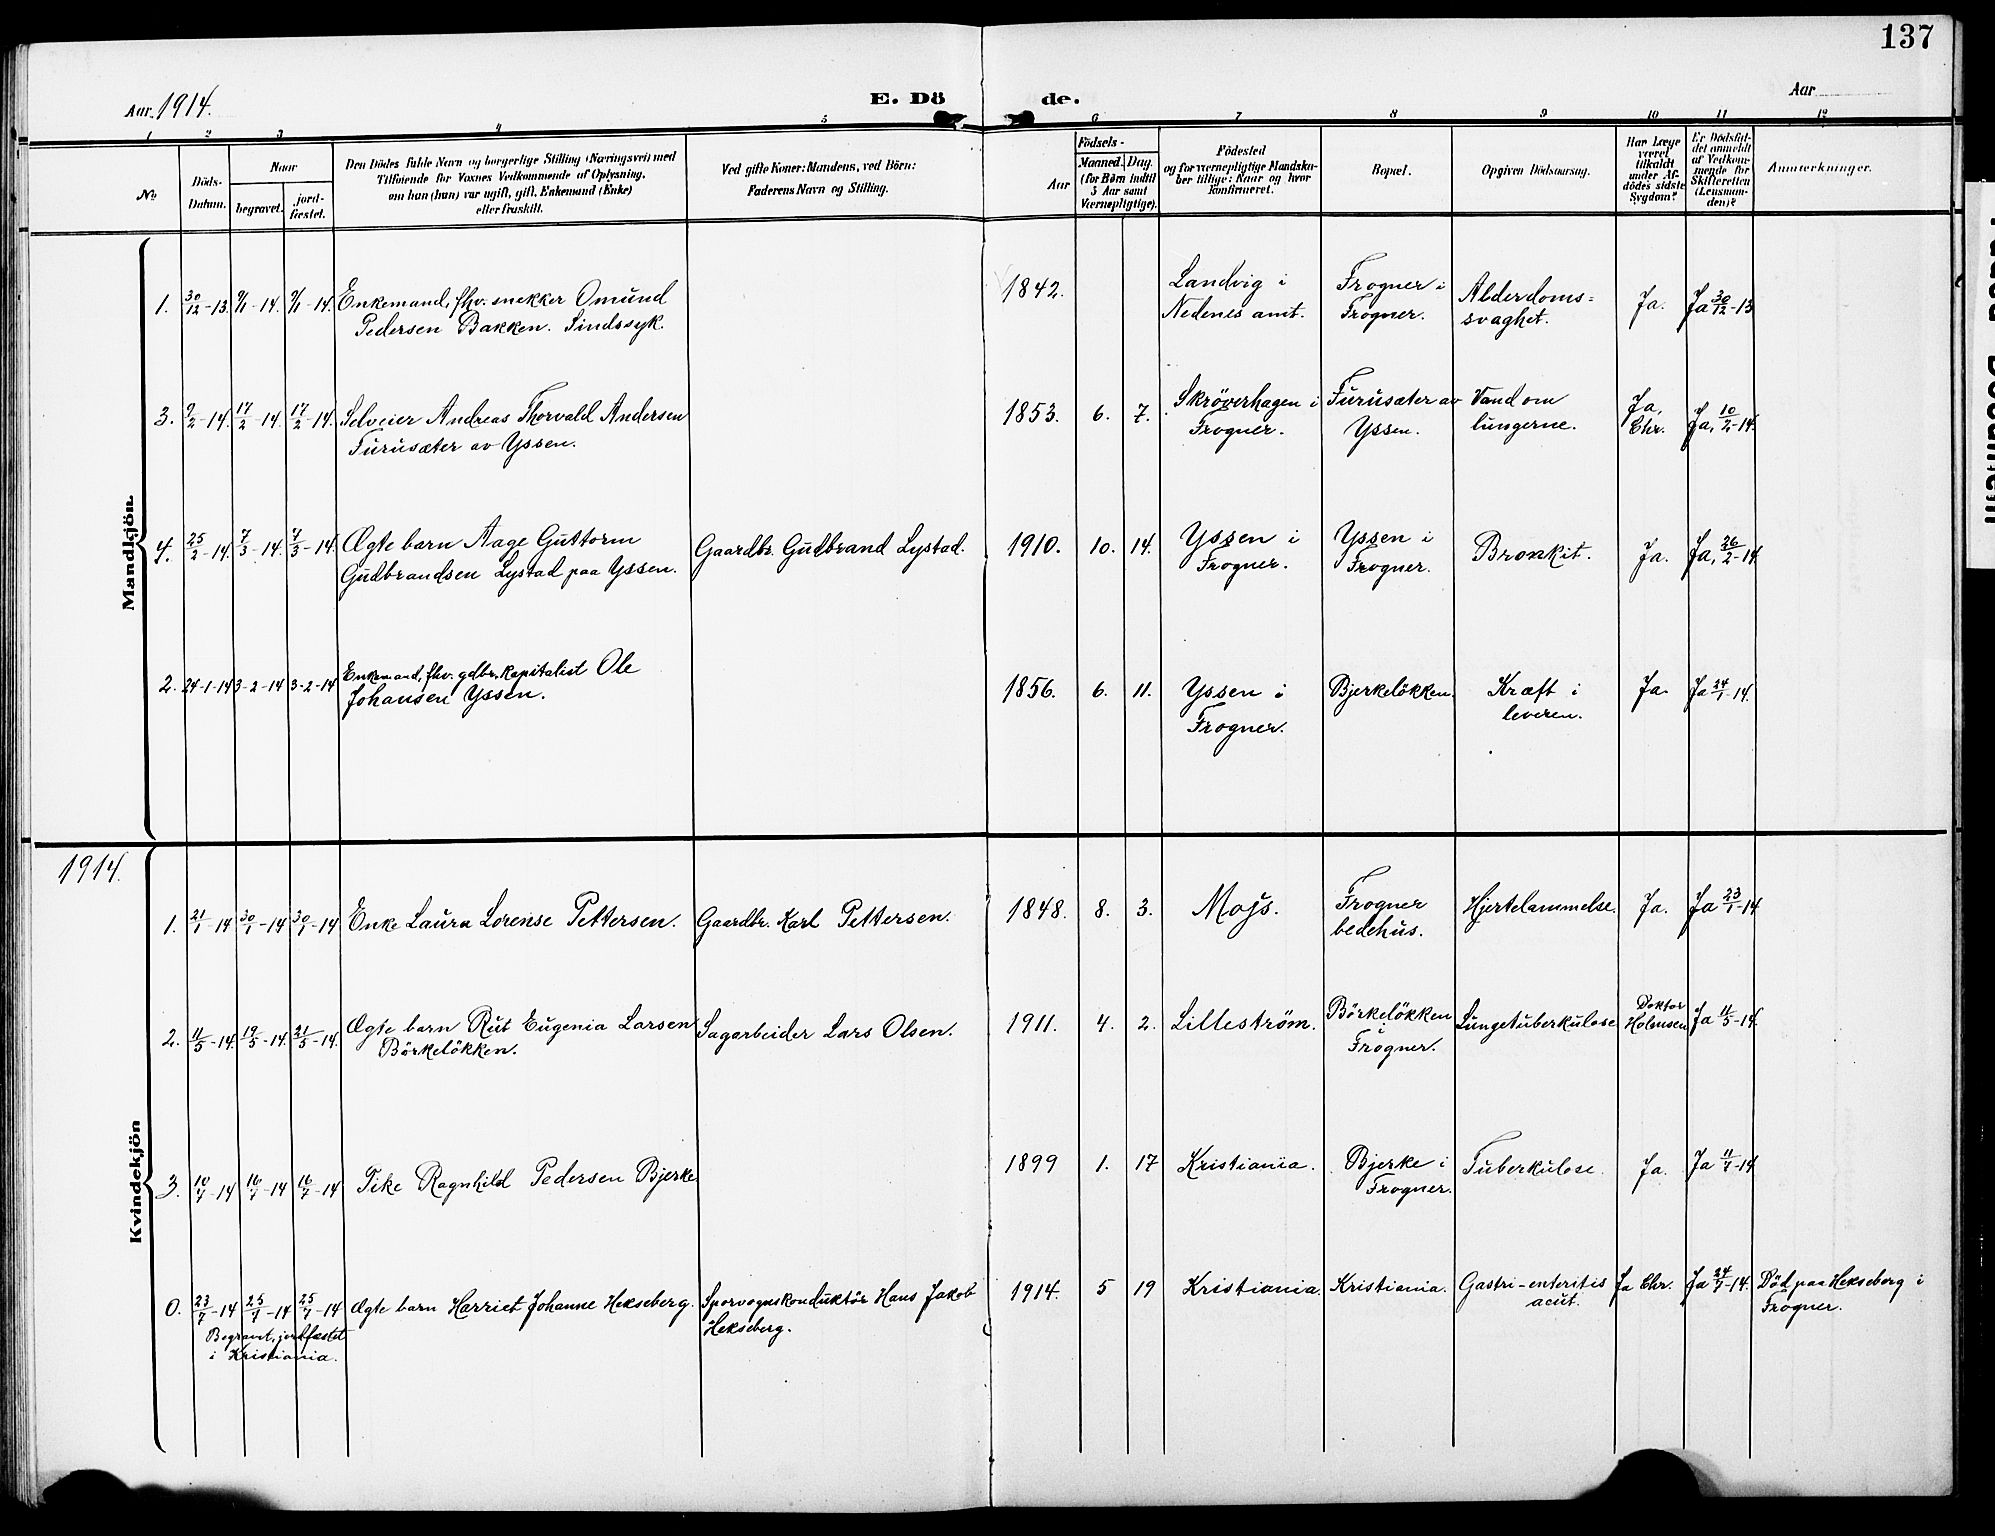 137
Aar 1914.
E. Dö
de.
Aar
1 2 3 4 5 6 7 8 9 10 11 12
No
Döds-
Datum.
Naar
begravet.
jord-
fæstet.
Den Dödes fulde Navn og borgerlige Stilling (Næringsvei) med
Tilföiende for Voxnes Vedkommende af Oplysning,
om han (hun) var ugift, gift, Enkemand (Enke)
eller fraskilt.
Ved gifte Koner: Mandens, ved Börn:
Faderens Navn og Stilling.
Aar
Födsels-
Maaned. Dag.
(for Börn indtil
5 Aar samt
Værnepligtige).
Födested
og for værnepligtige Mandska-
ber tillige: Naar og hvor
konfirmeret.
Bopæl.
Opgiven Dödsaarsag.
Har Læge
været
tilkaldt
under Af-
dödes sidste
Sygdom?
Er Dödsfal-
det anmeldt
af Vedkom-
mende for
Skifteretten
(Lensman-
den)?
Anmærkninger.
Mandkjön.
1. 30/12-13. 9/1-14. 9/1-14. Enkemand, fhv. snekker Omund 1842. Landvig i Frogner i Alderdoms- Ja. Ja 30/12-13
Pedersen Bakken. Sindssyk. Nedenes amt. Frogner. svaghet.
3. 9/2-14. 17/2-14. 17/2-14. Selveier Andreas Thorvald Andersen 1853. 6. 7. Skröverhagen i Furusæter av Vand om Ja, Ja, 10/2-14.
Furusæter av Yssen. Frogner. Yssen. lungerne. Chr.
4. 25/2-14. 7/3-14. 7/3-14. Ægte barn Aage Guttorm Gaardbr. Gudbrand Lystad. 1910. 10. 14. Yssen i Yssen i Bronkit. Ja. Ja, 26/2-14
Gudbrandsen Lystad paa Yssen. Frogner. Frogner.
2. 24-1-14 3-2-14 3-2-14 Enkemand, fhv. gdbr. kapitalist Ole 1856. 6. 11. Yssen i Bjerkelökken. Kræft i Ja. Ja 24/1-14.
Johansen Yssen. Frogner. leveren.
1914.
Kvindekjön
1. 21/1-14 30/1-14 30/1-14 Enke Laura Lorense Pettersen. Gaardbr. Karl Pettersen. 1848. 8. 3. Frogner Hjertelammelse. Ja. Ja 23/1-14
bedehus.
2. 11/5-14. 19/5-14. 21/5-14. Ægte barn Rut Eugenia Larsen Sagarbeider Lars Olsen. 1911. 4. 2. Lilleström. Börkelökken Lungetuberkulose Doktor Ja 11/5-14.
Börkelökken. i Holmsen
Frogner.
3. 10/7-14 16/7-14 16/7-14 Pike Ragnhild Pedersen Bjerke 1899 1. 17 Kristiania. Bjerke i Tuberkulose. Ja. Ja 11/7-14
Frogner.
0. 23/7-14 25/7-14 25/7-14 Ægte barn Harriet Johanne Hekseberg. Sporvognskonduktör Hans Jakob 1914. 5 19 Kristiania. Kristiania. Gastri-enteritis Ja Chr. Ja 24/7-14. Död paa Hekseberg i
Begravet, jordfæstet Hekseberg. acut. Frogner.
i Kristiania.